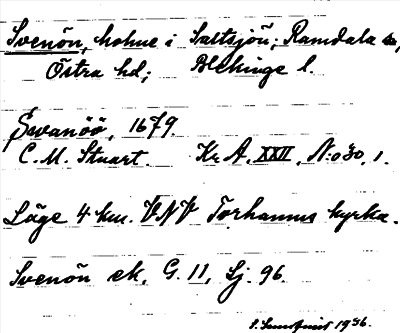 Svenön, holme i Saltsjön; Ramdala sn,
Östra hd; Blekinge l.
Swanöö, 1679.
C. M. Stuart. Kr. A. XXII, N:o 30, 1.
Läge 4 km. VNV Torhamns kyrka.
Svenön ek. G. 11, Lj. 96.
1936.